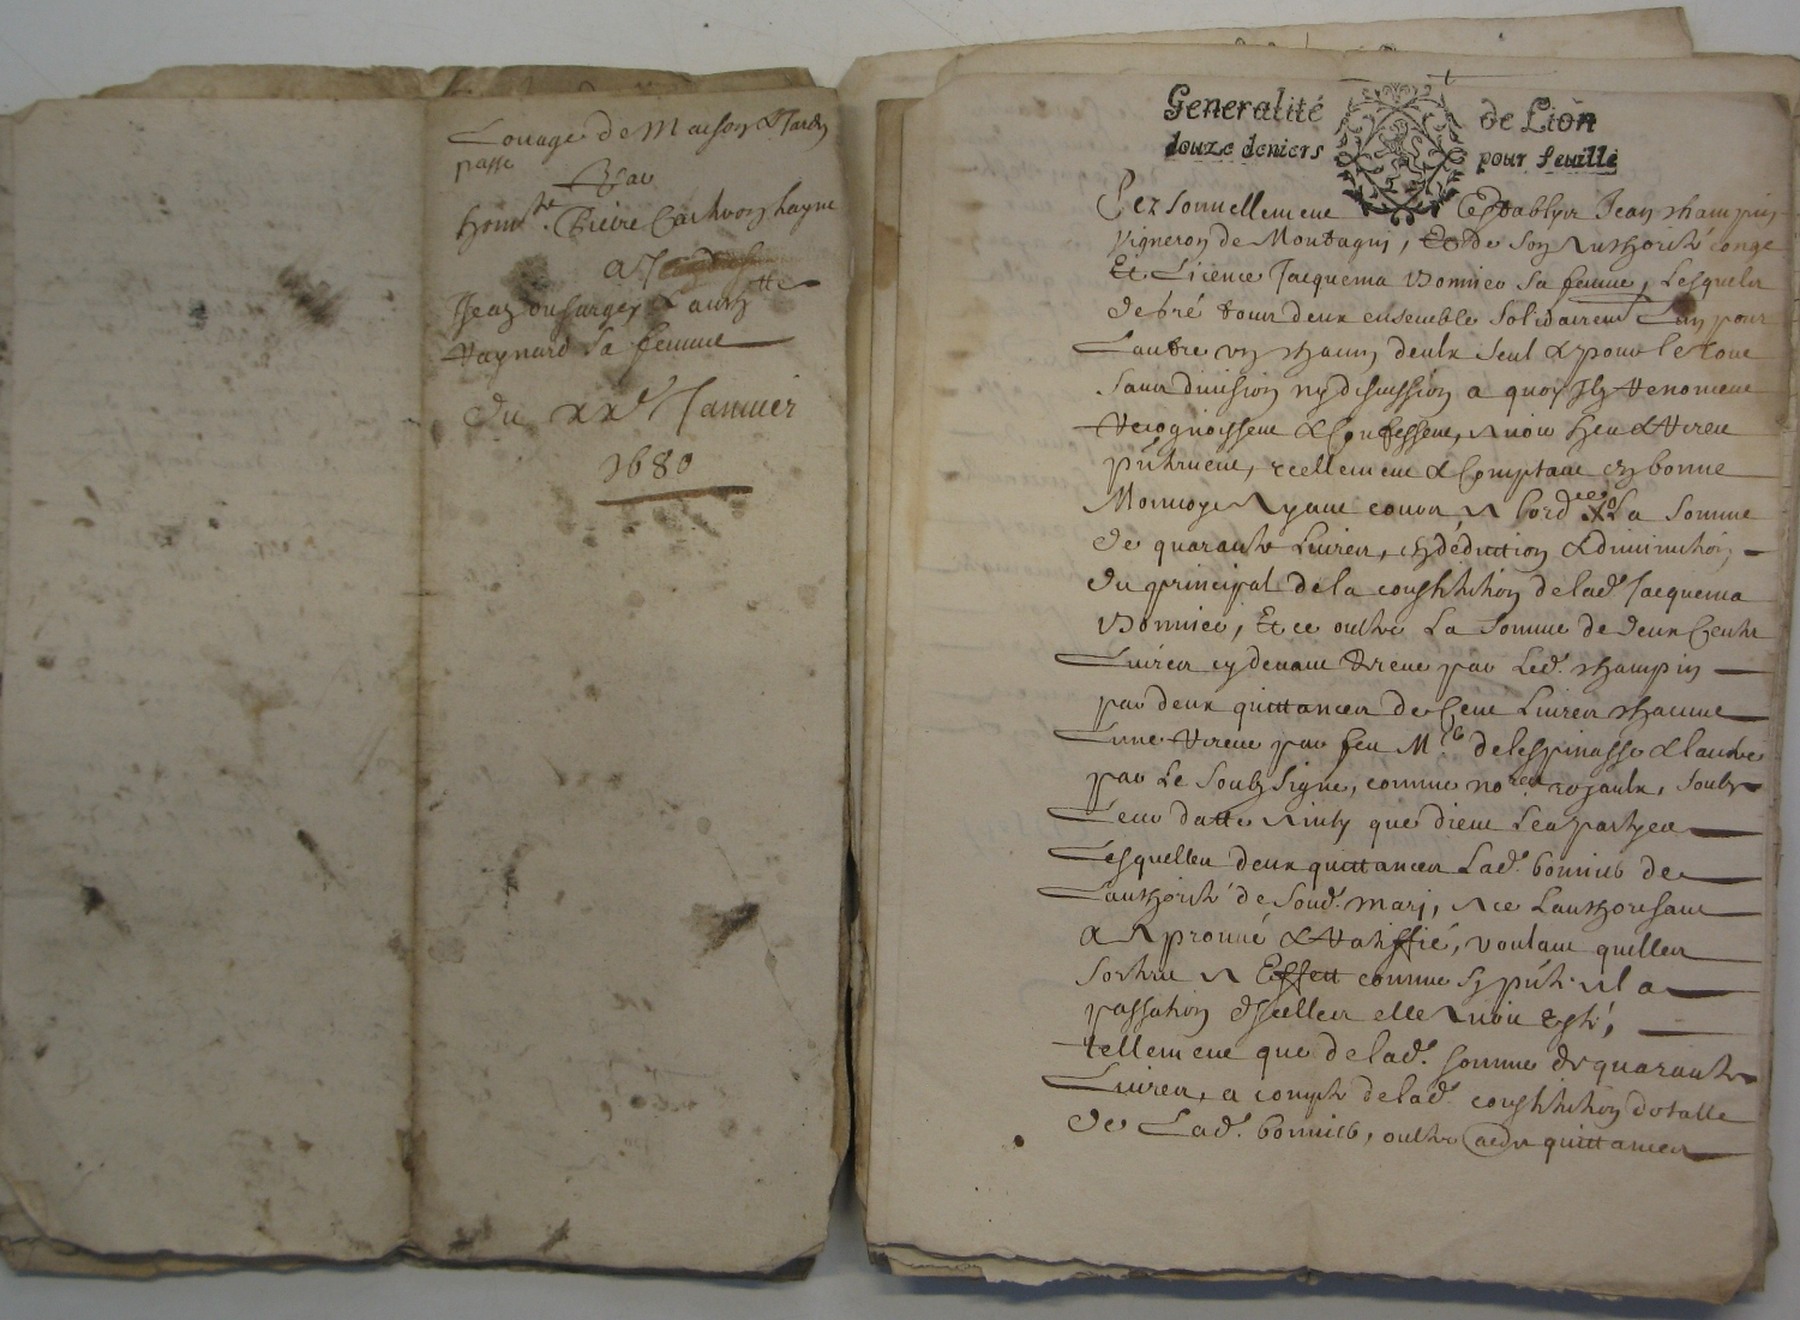 Louage de Maison & Jardin
passé
Par
hon.ble Pierre
A
Jean & Lauth.tte
Raynard Sa femme
Du xx.e Januier
1680
Generalité de Lion
douze deniers pour feuille
Personnellement Establys Jean Champin
Vigneron de Montagny, & de Son Authorité congé
Et Licence Jacquema Bonnier Sa femme, Lesquels
de gré tous deux ensemble Solidairem.t Lun pour
Lautre un chacun deulx Seul & pour le tout
Sans diuision ny discussion a quoy Ilz renoncent
Recognoissent & Confessent, Auoir heu & Receu
p.ntement, reellement & Comptant en bonne
Monnoye Ayant cours, A Lord.ce La Somme
de quarante Liures, en déduction & diminution
du principal de la constitution de lad. Jacquema
Bonnier, Et ce oultre La Somme de deux Cents
Liures cy deuant Receue par Led. Champin
par deux quittances de Cent Liures chacune
Lune Receue par feu M.e delespinasse & lautre
par Le Soubz Signé, comme no.res royaulx, Soubz
Leur datte Ainsy que dient Les partyes
Lesquelles deux quittances Lad. bonnier de
Lauthorité de Soud. mary, A ce Lauthorisant
A Aprouué & Ratiffié, voulant quelles
Sortent A Effett comme Sy p.nte A la
passation dIcelles elle Auoit Esté,
tellement que de lad. Somme de quarante
Liures, a compte de lad. constitution dotalle
de Lad. bonnier, oultre quittances